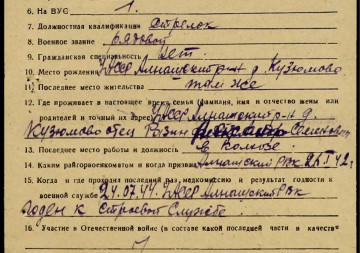 6. На ВУС 1.
7. Должностная квалификация стрелок
8. Военное звание рядовой
9. Гражданская специальность нет.
10. Место рождения УАССР Алнашский р-н д. Кузюмово
11. Последнее место жительства там же
12. Где проживает в настоящее время семья (фамилия, имя и отчество жены или
родителей и точный их адрес) УАССР Алнашский р-н д.
Кузюмово отец Семенович
13. Последнее место работы и должность в колхозе
14. Каким райгорвоенкоматом и когда призван Алнашский РВК
15. Когда и где проходил последний раз медкомиссию и результат годности к
военной службе 24.07.44. УАССР Алнашский РВК
годен к строевой службе.
16. Участие в Отечественной войне (в составе какой последней части и в качестве